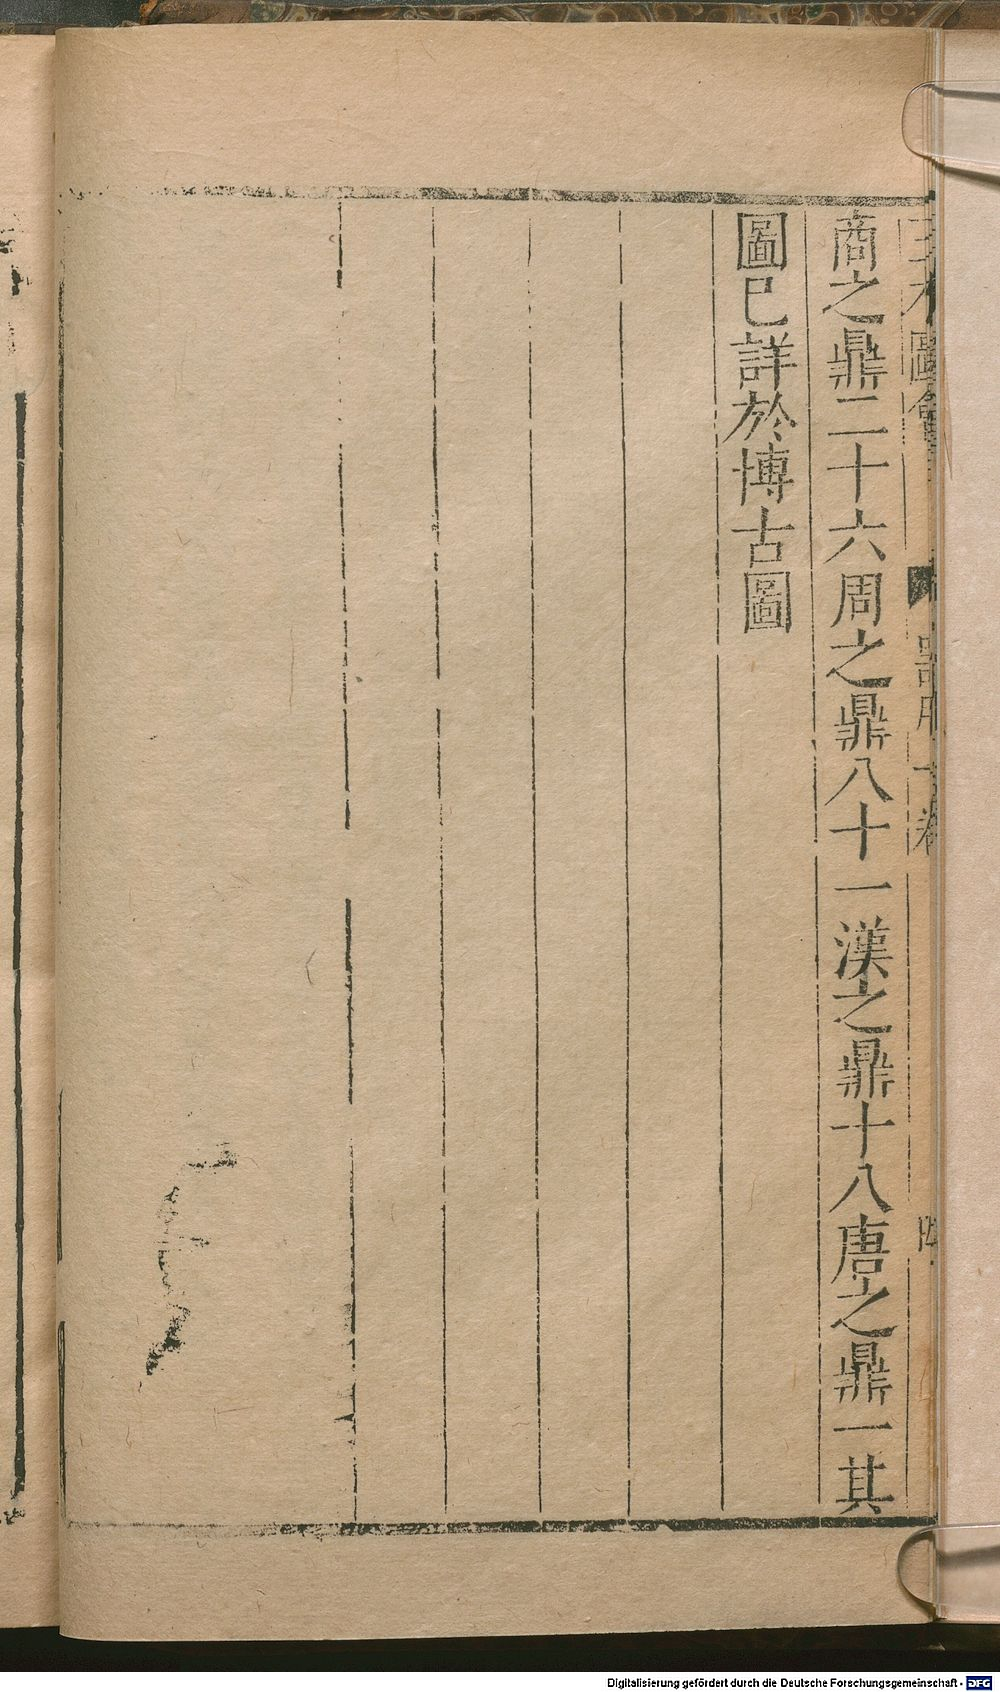 三才圖會
器用一卷
商之鼎二十六周之鼎八十一漢之鼎十八唐之鼎一其
圖已詳於博古圖
Digitalisierung gefördert durch die Deutsche Forschungsgemeinschaft - DFG